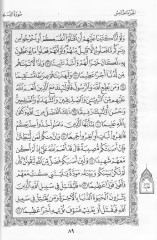 الجزء الخامس
سورة النساء
وَلَوْ أَنَّا كَتَبْنَا عَلَيْهِمْ أَنِ ٱقْتُلُوٓا۟ أَنفُسَكُمْ أَوِ ٱخْرُجُوا۟
مِن دِيَٰرِكُم مَّا فَعَلُوهُ إِلَّا قَلِيلٌ مِّنْهُمْ وَلَوْ أَنَّهُمْ فَعَلُوا۟ مَا يُوعَظُونَ
بِهِۦ لَكَانَ خَيْرًا لَّهُمْ وَأَشَدَّ تَثْبِيتًا ٦٦ وَإِذًا لَّءَاتَيْنَٰهُم
مِّن لَّدُنَّآ أَجْرًا عَظِيمًا ٦٧ وَلَهَدَيْنَٰهُمْ صِرَٰطًا مُّسْتَقِيمًا ٦٨
وَمَن يُطِعِ ٱللَّهَ وَٱلرَّسُولَ فَأُو۟لَٰٓئِكَ مَعَ ٱلَّذِينَ أَنْعَمَ ٱللَّهُ عَلَيْهِم
مِّنَ ٱلنَّبِيِّـۧنَ وَٱلصِّدِّيقِينَ وَٱلشُّهَدَآءِ وَٱلصَّٰلِحِينَ
وَحَسُنَ أُو۟لَٰٓئِكَ رَفِيقًا ٦٩ ذَٰلِكَ ٱلْفَضْلُ مِنَ ٱللَّهِ وَكَفَىٰ
بِٱللَّهِ عَلِيمًا ٧٠ يَٰٓأَيُّهَا ٱلَّذِينَ ءَامَنُوا۟ خُذُوا۟ حِذْرَكُمْ
فَٱنفِرُوا۟ ثُبَاتٍ أَوِ ٱنفِرُوا۟ جَمِيعًا ٧١ وَإِنَّ مِنكُمْ لَمَن لَّيُبَطِّئَنَّ
فَإِنْ أَصَٰبَتْكُم مُّصِيبَةٌ قَالَ قَدْ أَنْعَمَ ٱللَّهُ عَلَىَّ إِذْ لَمْ أَكُن
مَّعَهُمْ شَهِيدًا ٧٢ وَلَئِنْ أَصَٰبَكُمْ فَضْلٌ مِّنَ ٱللَّهِ لَيَقُولَنَّ
كَأَن لَّمْ تَكُنۢ بَيْنَكُمْ وَبَيْنَهُۥ مَوَدَّةٌ يَٰلَيْتَنِى كُنتُ
مَعَهُمْ فَأَفُوزَ فَوْزًا عَظِيمًا ٧٣ فَلْيُقَٰتِلْ فِى سَبِيلِ ٱللَّهِ
ٱلَّذِينَ يَشْرُونَ ٱلْحَيَوٰةَ ٱلدُّنْيَا بِٱلْءَاخِرَةِ وَمَن يُقَٰتِلْ فِى سَبِيلِ
ٱللَّهِ فَيُقْتَلْ أَوْ يَغْلِبْ فَسَوْفَ نُؤْتِيهِ أَجْرًا عَظِيمًا ٧٤
٨٩